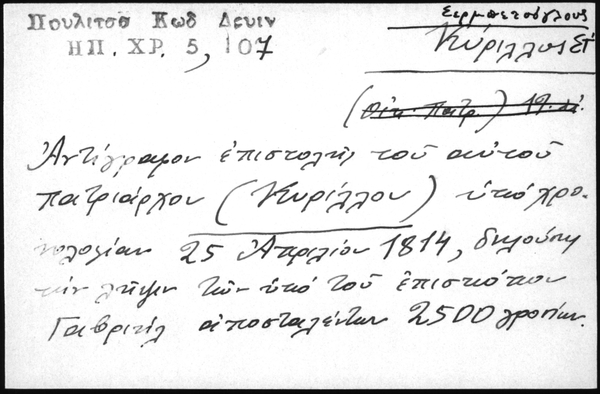 Σερμπετσόγλους
Πουλιτσα Κωδ Δενιν
ΗΠ. ΧΡ. 5, 107
Κύριλλος Στ'
(Οἰκ. Πατρ.) 19. αἰ.
Ἀντίγραφον ἐπιστολῆς τοῦ αὐτοῦ
πατριάρχου (Κυρίλλου) ὑπὸ χρο-
νολογίαν 25 Ἀπριλίου 1814, δηλοῦσης
τὴν λῆψιν τῶν ὑπὸ τοῦ ἐπισκόπου
Γαβριὴλ ἀποσταλέντων 2500 γροσίων.